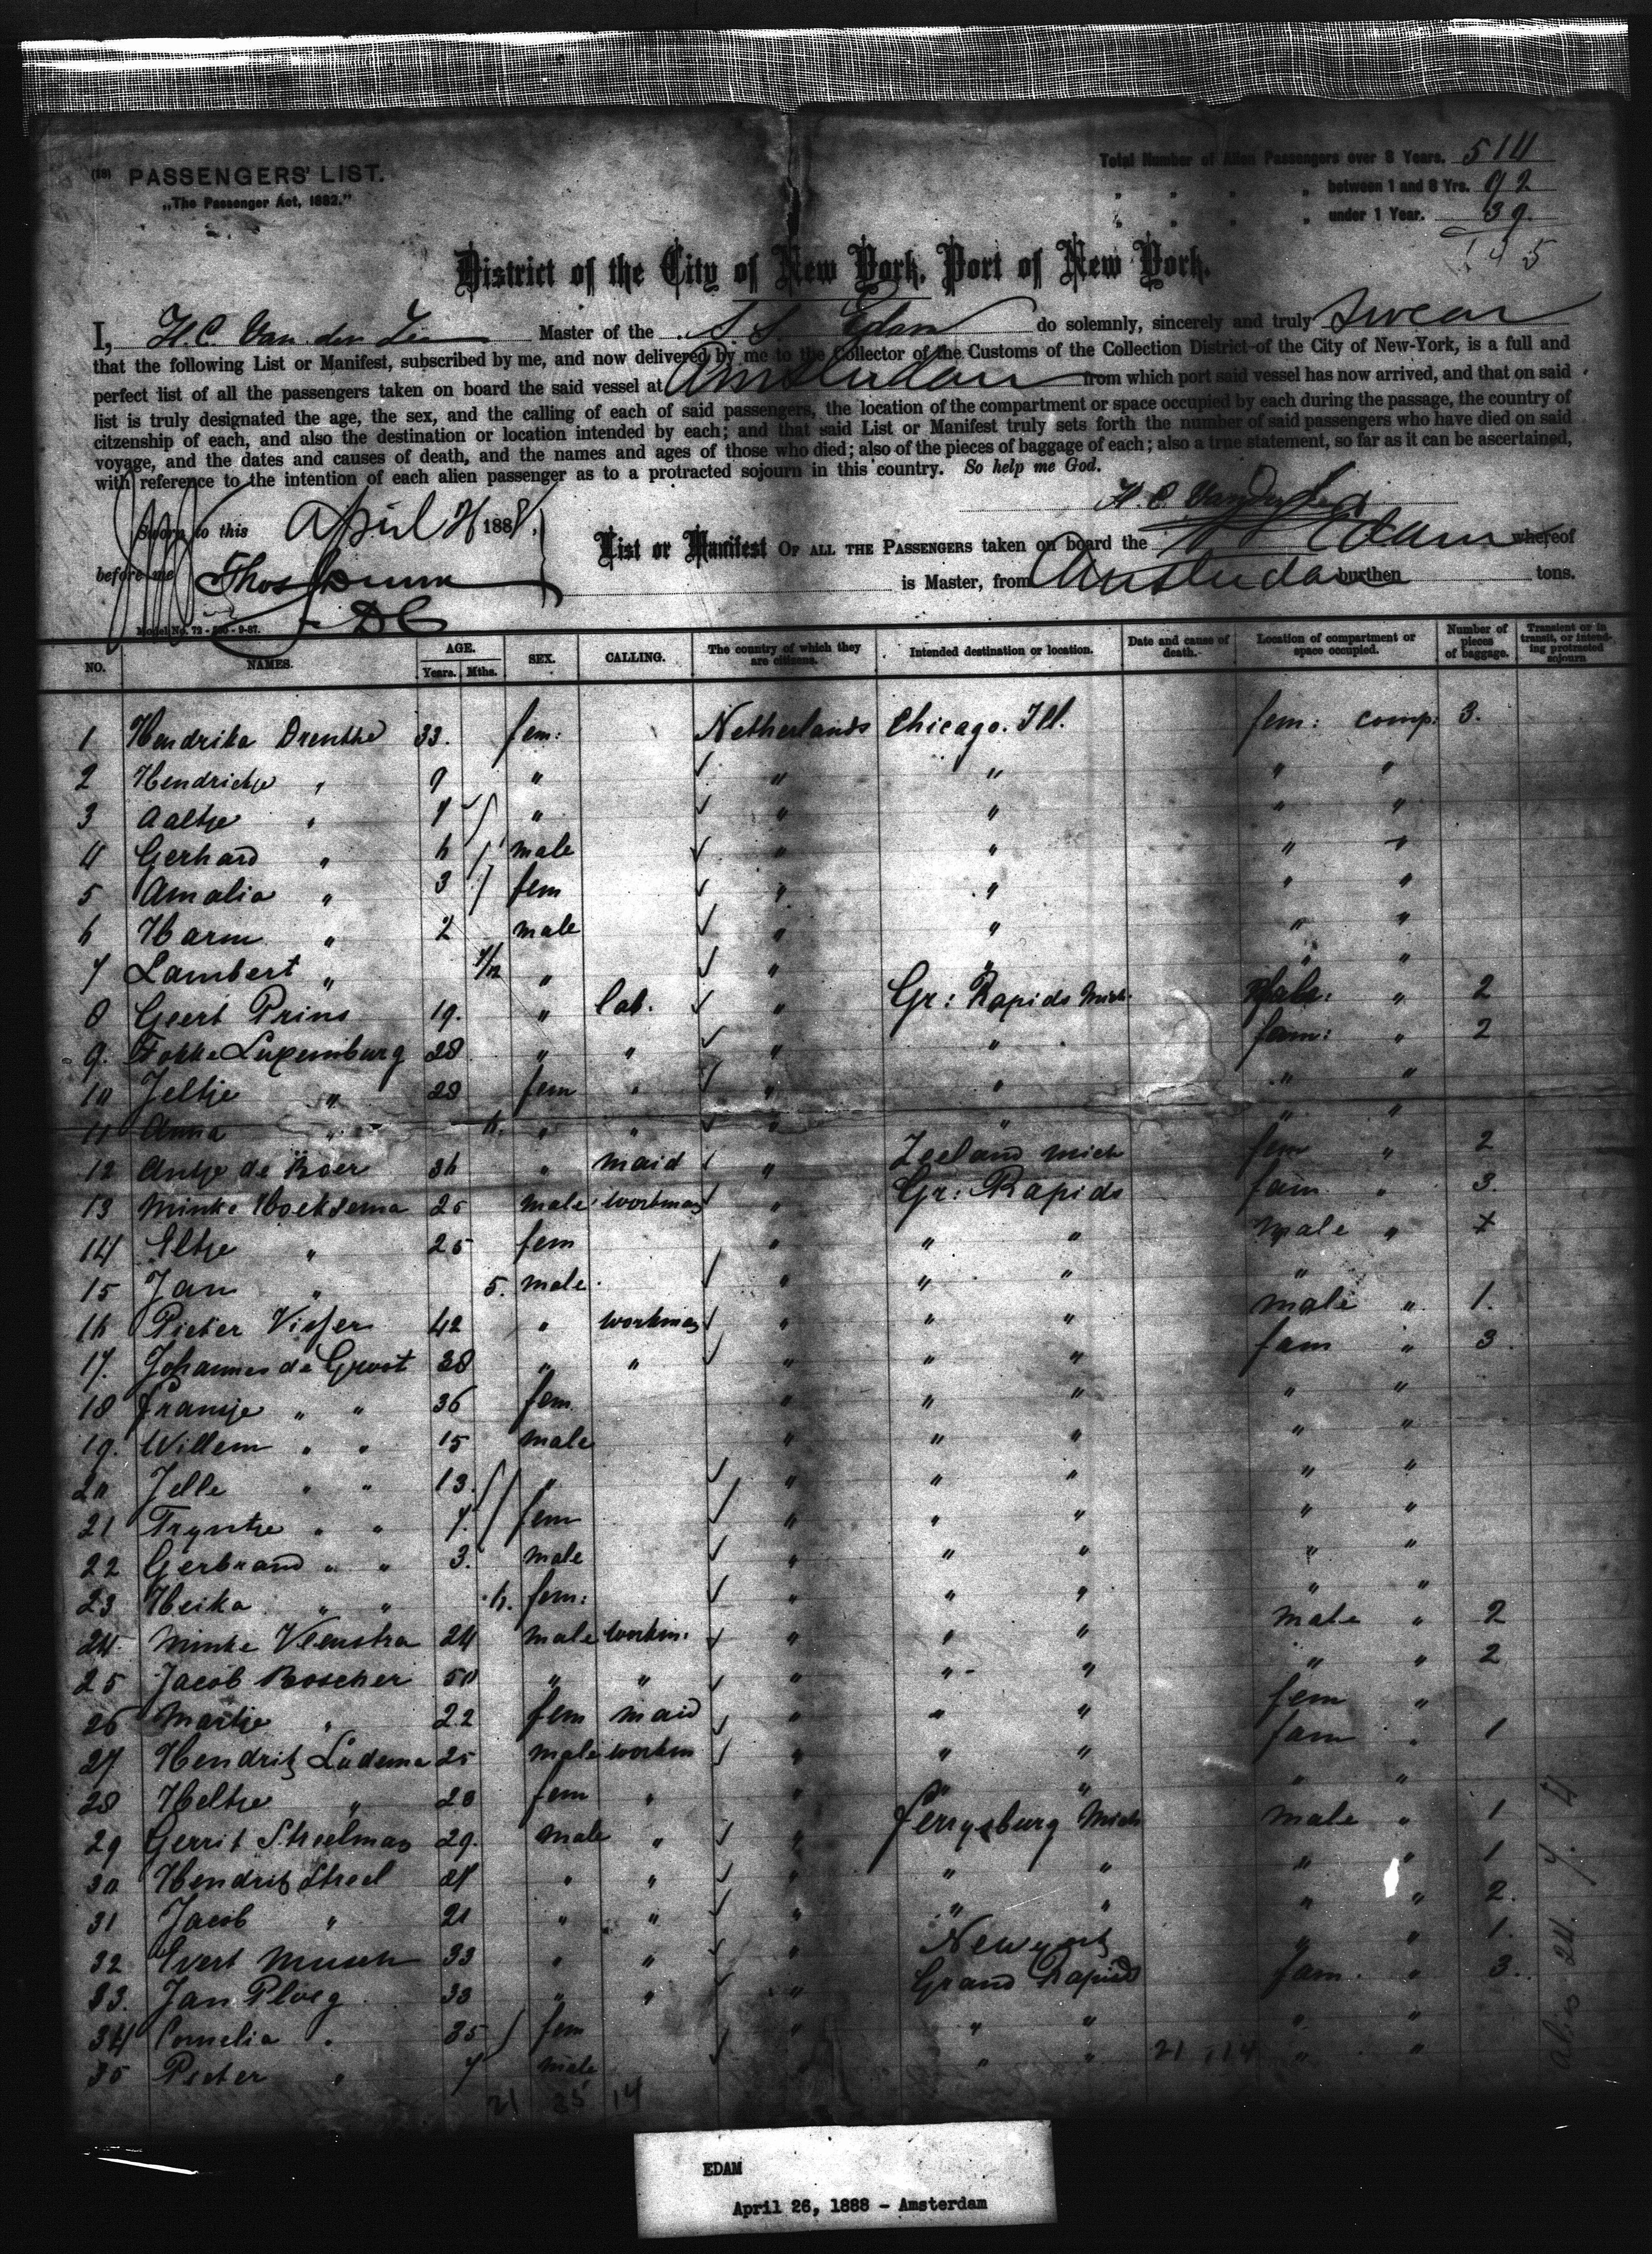 (18) PASSENGERS' LIST.
„The Passenger Act, 1882."
Total Number of Alien Passengers over 8 Years. 514
" " " " between 1 and 8 Yrs. 92
" " " " under 1 Year. 39.
District of the City of New York, Port of New York.
I, H.C. Van der Zee Master of the S.S. Edam do solemnly, sincerely and truly swear
that the following List or Manifest, subscribed by me, and now delivered by me to the Collector of the Customs of the Collection District of the City of New-York, is a full and
perfect list of all the passengers taken on board the said vessel at Amsterdam from which port said vessel has now arrived, and that on said
list is truly designated the age, the sex, and the calling of each of said passengers, the location of the compartment or space occupied by each during the passage, the country of
citzenship of each, and also the destination or location intended by each; and that said List or Manifest truly sets forth the number of said passengers who have died on said
voyage, and the dates and causes of death, and the names and ages of those who died; also of the pieces of baggage of each; also a true statement, so far as it can be ascertained,
with reference to the intention of each alien passenger as to a protracted sojourn in this country. So help me God.
H. C. Van der Zee
Sworn to this April 26 1888,
before me Thos Dunn
DC
List or Manifest OF ALL THE PASSENGERS taken on board the Edam whereof
is Master, from Amsterdam burthen tons.
Model No. 72 - 500 - 9-87.
NO. NAMES. AGE. Years. Mths. SEX. CALLING. The country of which they are citizens. Intended destination or location. Date and cause of death. Location of compartment or space occupied. Number of pieces of baggage. Transient or in transit, or intending protracted sojourn
1 Hendrika Drenthe 33. fem: Netherlands Chicago. Ill. fem: comp: 3.
2 Hendrickje " 9 " " " " "
3 Aaltje " 7 " " " " "
4 Gerhard " 6 male " " " "
5 Amalia " 3 fem " " " "
6 Harm " 2 male " " " "
7 Lambert " 7/12 " " " " "
8 Geert Prins 19. " lab. " Gr: Rapids Mich. Male: " 2
9. Fokke Luxemburg 28 " " " " fam: " 2
10 Jeltje " 28 fem " " " " "
11 Anna " 6. " " " " " "
12 Antje de Boer 36 " maid " Zeeland Mich fem " 2
13 Minke Hoeksema 25 male workman " Gr: Rapids fam " 3.
14 Eltje " 25 fem " " " male "
15 Jan " 5. male. " " " "
16 Pieter Visser 42 " workman " " " male " 1.
17. Johannes de Groot 38 " " " " " fam " 3.
18 Fransje " " 36 fem. " " " " "
19. Willem " " 15 male " " " " "
20 Jelle " " 13. " " " " " "
21 Tryntje " " 7. fem " " " " "
22 Gerbrand " " 3. male " " " " "
23 Heika " " 6. fem: " " " " "
24. Minke Veenstra 24 male workm: " " " male " 2
25 Jacob Boscher 50 " " " " " " " 2
26 Martje " 22 fem maid " " " fem "
27 Hendrik Ludema 25 male workm " " " fam " 1
28 Heltje " 28 fem " " " " " "
29 Gerrit Streelman 29. male " " Ferrysburg Mich male " 1
30 Hendrik Streel 27 " " " " " " " 1
31 Jacob " 21 " " " " " " " 2.
32 Evert Musch 33 " " " New york " " 1.
33. Jan Ploeg 33 " " " Grand Rapids fam. " 3.
34 Cornelia " 35 fem " " " " "
35 Pieter " 7 male " " " "
21 114
21 35 14
EDAM
April 26, 1888 - Amsterdam